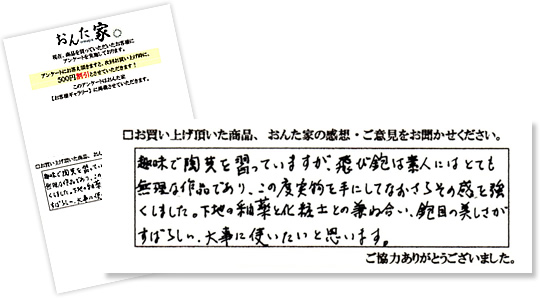 おんた家
現在、商品を買っていただいたお客様に
アンケートを実施しております。
アンケートにお答え頂きますと、次回お買い上げ時に、
500円割引とさせていただきます!
このアンケートはおんた家
【お客様ギャラリー】に掲載させていただきます。
□お買い上げ頂いた商品、おん
趣味で陶芸を習っていますが、
無理な作品であり、この
くしました。下地の釉薬
すばらしい、大事に使
□お買い上げ頂いた商品、おんた家の感想・ご意見をお聞かせください。
趣味で陶芸を習っていますが、飛び鉋は素人にはとても
無理な作品であり、この度実物を手にしてなおさらその感を強
くしました。下地の釉薬と化粧土との兼ね合い、鉋目の美しさが
すばらしい、大事に使いたいと思います。
ご協力ありがとうございました。